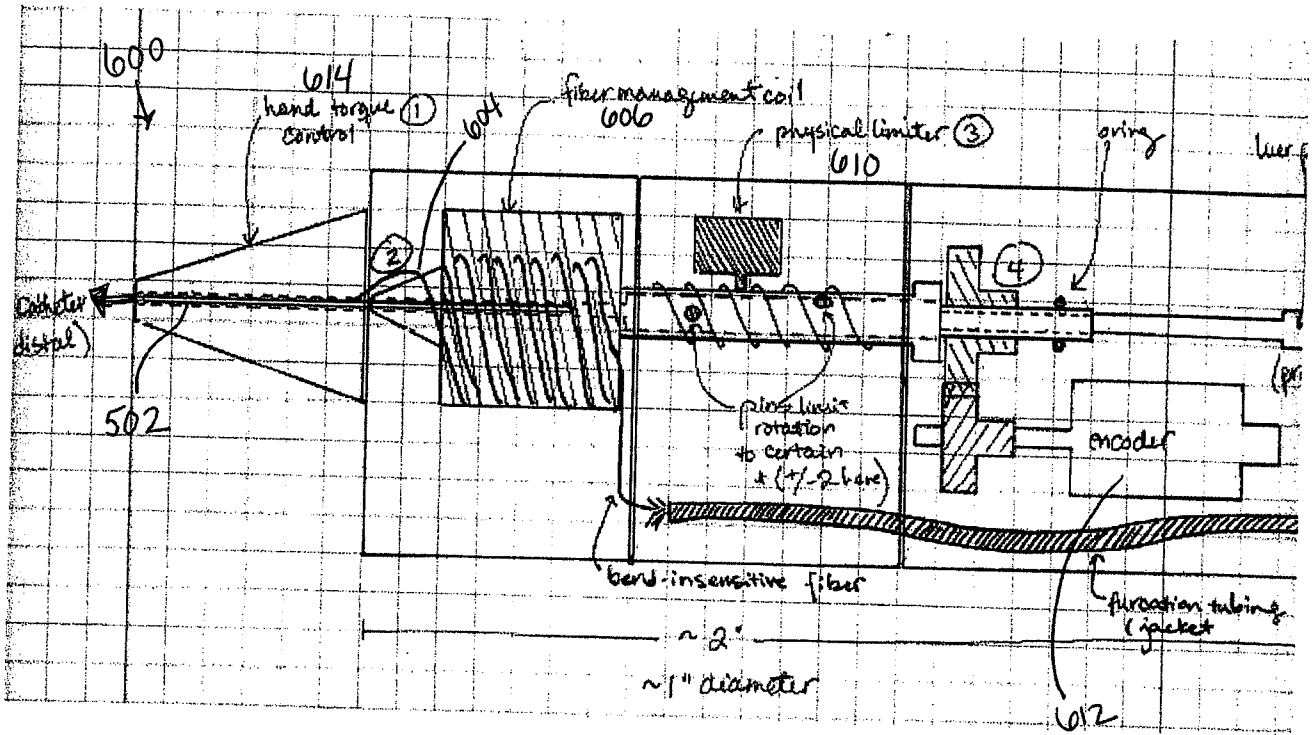 600
614
hand torque ①
control
604
fiber management coil
606
physical limiter ③
610
oring
luer
②
④
Catheter
distal)
502
pins limit
rotation
to certain
# (+/-2 here)
encoder
bend-insensitive fiber
furcation tubing
(jacket
~ 2"
~1" diameter
612